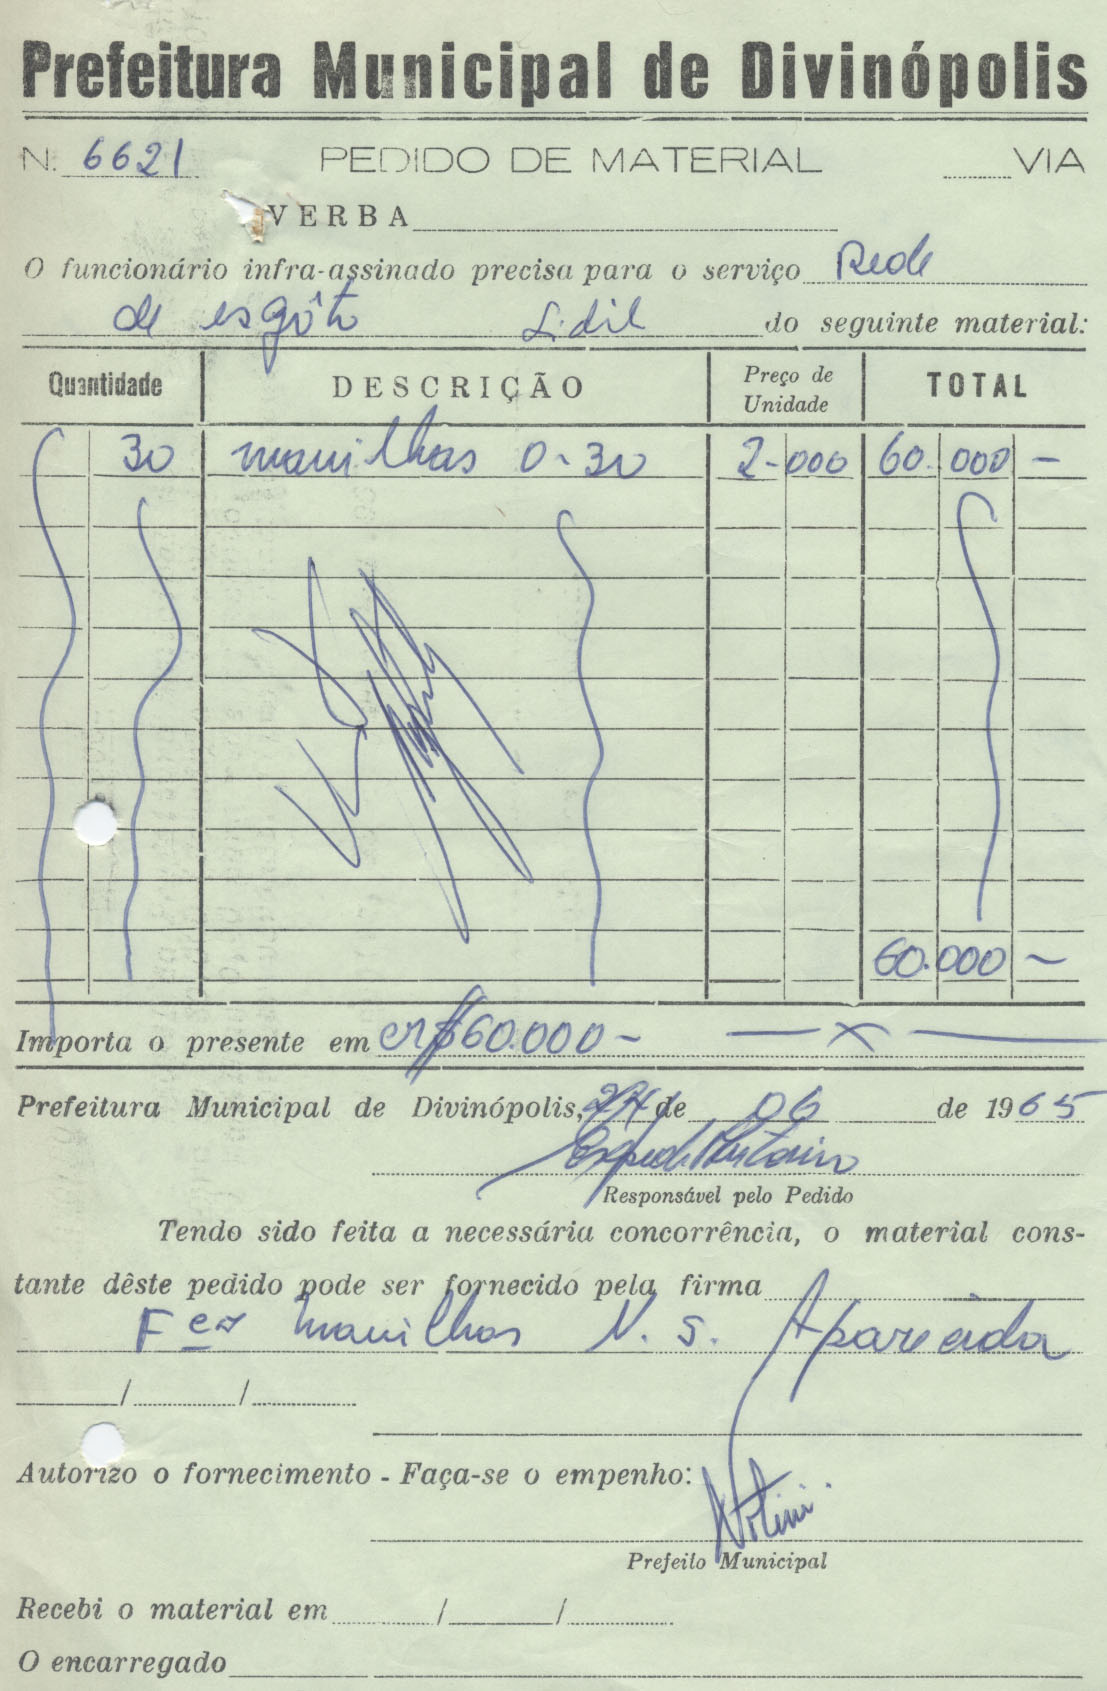 Prefeitura Municipal de Divinópolis
N. 6621 PEDIDO DE MATERIAL ........VIA
VERBA
O funcionário infra-assinado precisa para o serviço Rede
de esgôto Lidil do seguinte material:
Quantidade DESCRIÇÃO Preço de Unidade TOTAL
30 manilhas 0-30 2-000 60.000 -
60.000 -
Importa o presente em CR$60.000 - — x —
Prefeitura Municipal de Divinópolis, de 06 de 1965
Responsável pelo Pedido
Tendo sido feita a necessária concorrência, o material cons-
tante dêste pedido pode ser fornecido pela firma
Fca manilhas N. S. Aparecida
/ /
Autorizo o fornecimento - Faça-se o empenho:
Prefeito Municipal
Recebi o material em / /
O encarregado